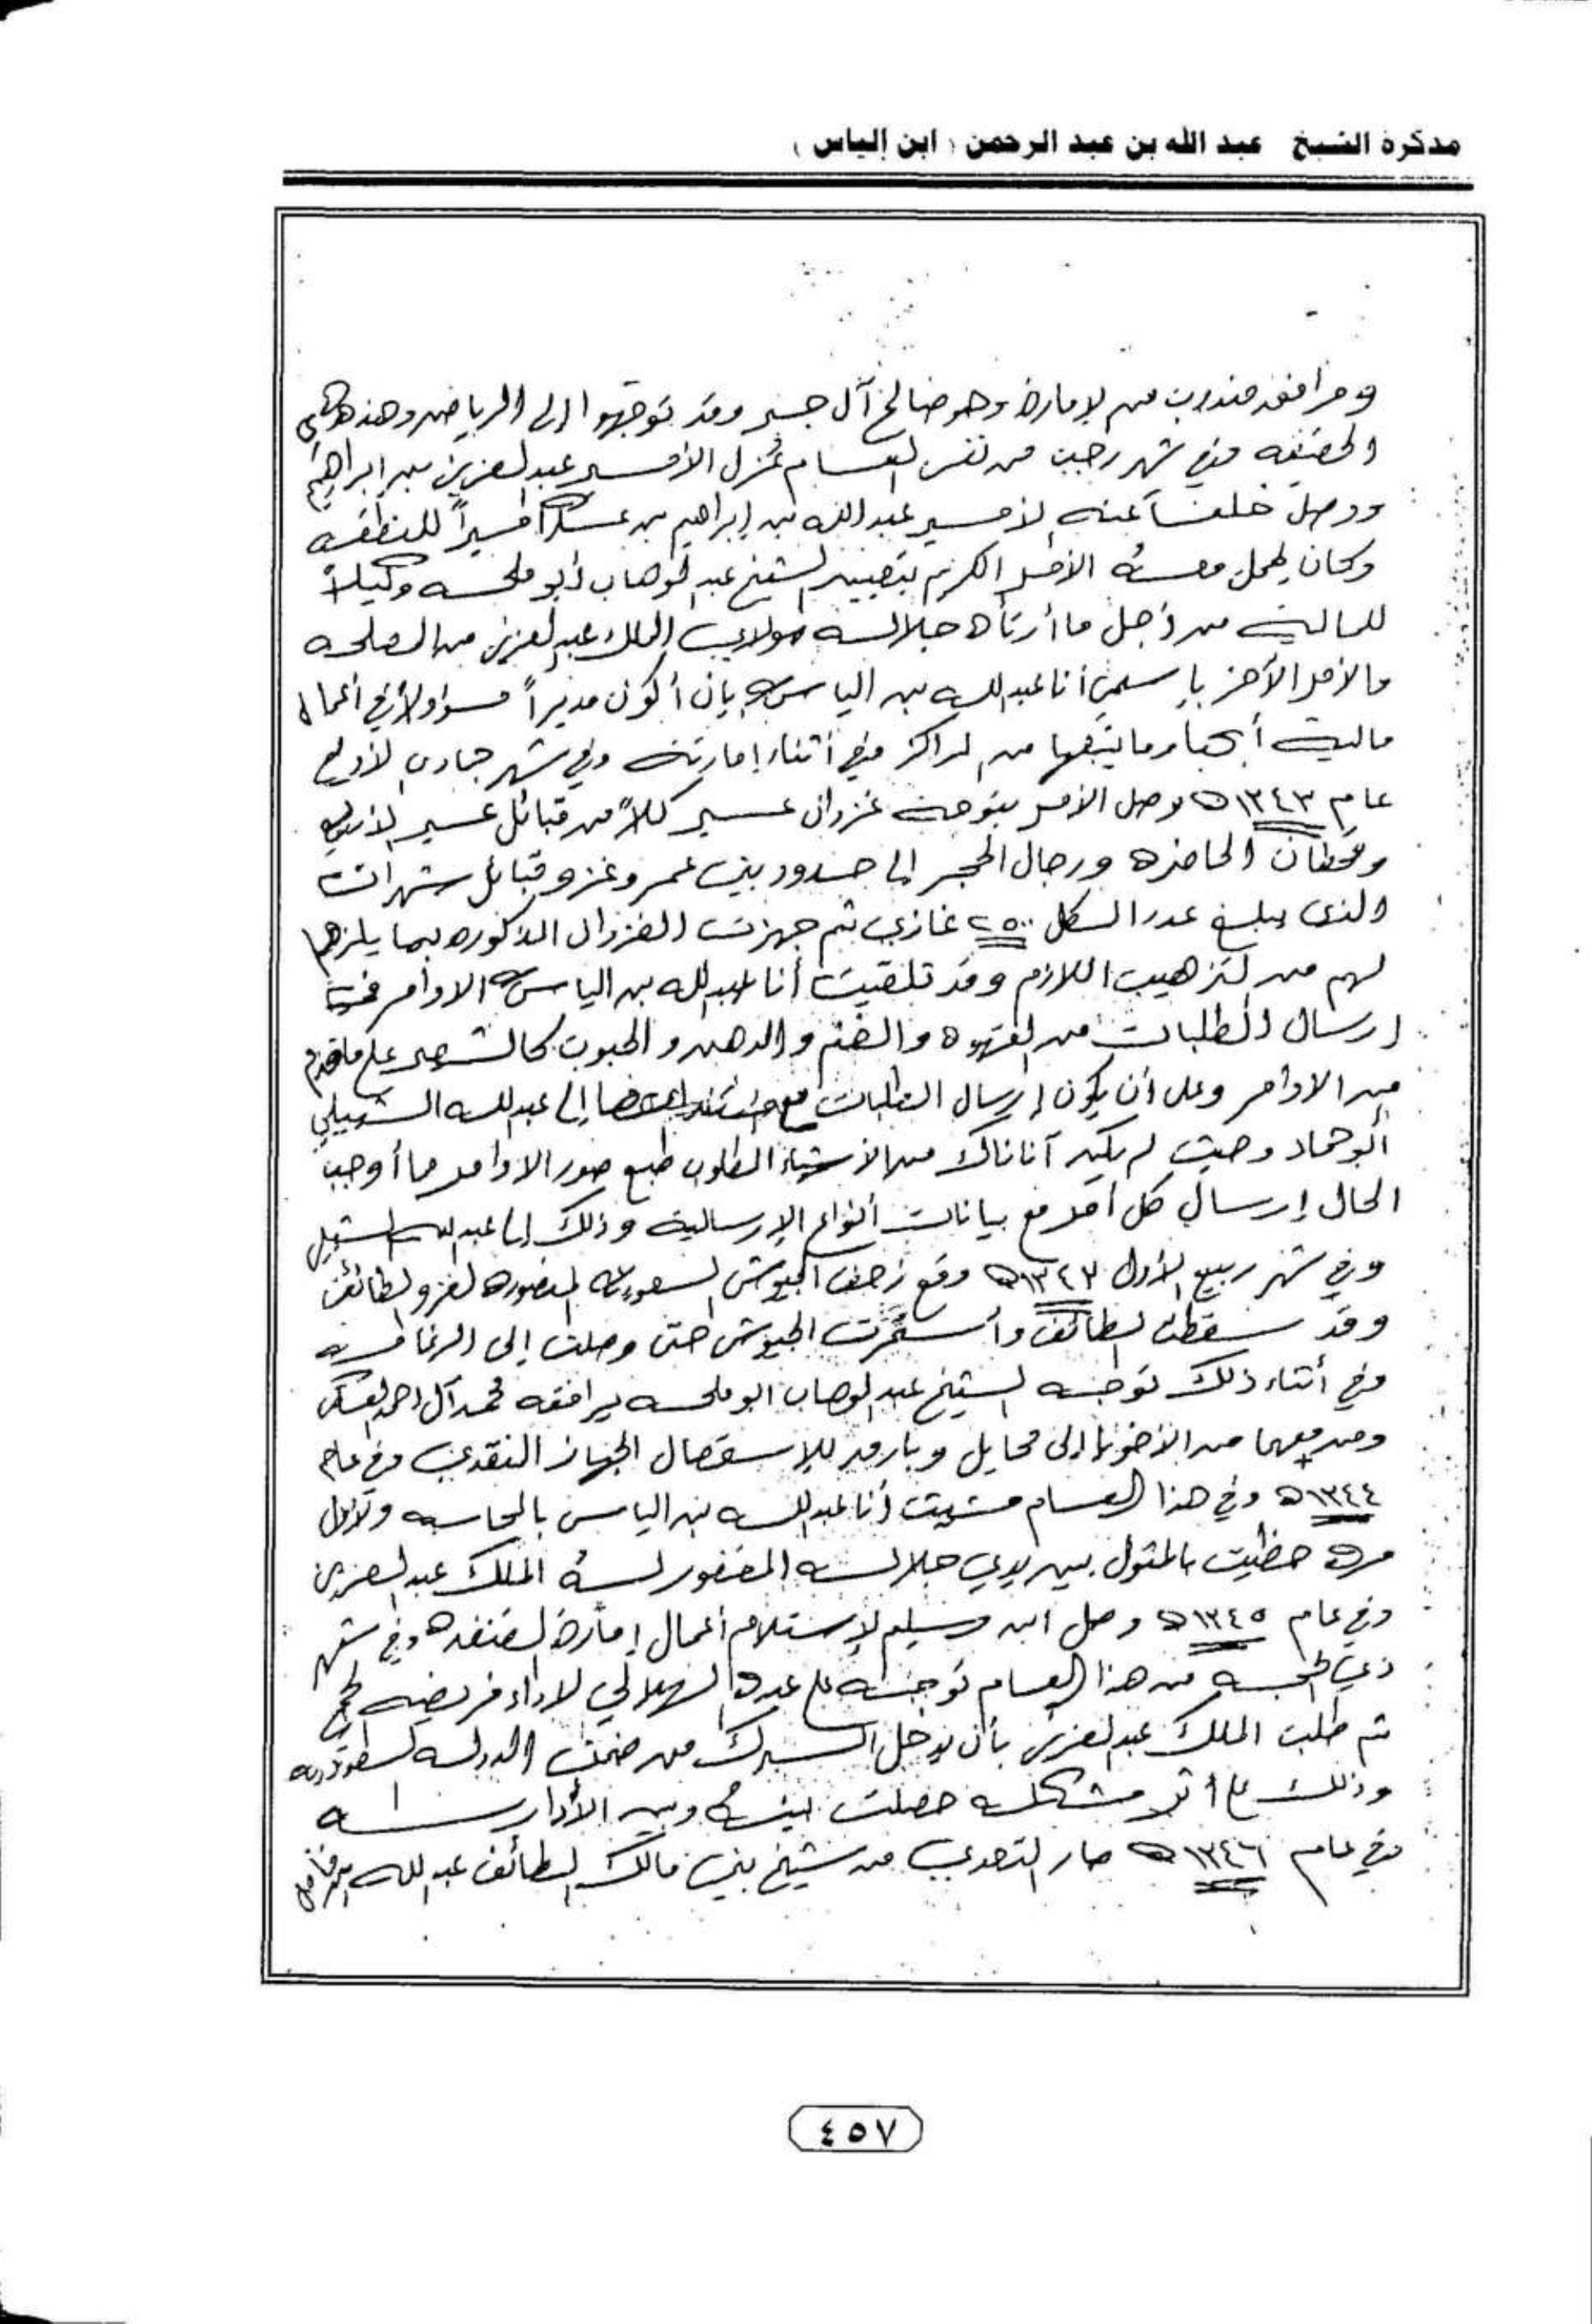 مذكرة الشيخ عبد الله بن عبد الرحمن (ابن إلياس)
ومرافقه مندوب من الإمارة وهو صالح آل جبر وقد توجهوا إلى الرياض وهذه هي
الحقيقه وفي شهر رجب من نفس العام عُزل الأمير عبدالعزيز بن ابراهيم
ووصل خلفاً عنه الأمير عبدالله بن إبراهيم بن عسكر أميراً للمنطقه
وكان يحمل معه الأمر الكريم بتعيين الشيخ عبدالوهاب أبو ملحه وكيلاً
للماليه من أجل ما أرتأه جلالة مولاي الملك عبدالعزيز من المصلحه
والأمر الآخر بإسمي أنا عبدالله بن الياس بإن أكون مديراً مسؤولاً في أعمال
مالية أبها وما يتبعها من المراكز في أثناء إمارته وفي شهر جمادى الأول
عام ١٣٤٣ه وصل الأمر بتوجه غزوان عسير كلاً من قبائل عسير الأربع
وقحطان الحاضره ورجال الحجر إلى حدود بني عمرو غزو قبائل شهران
الذي يبلغ عدد الكل ٢٥٠٠ غازي تم جهزت الغزوان المذكوره بما يلزم
لهم من التزهيب اللازم وقد تلقيت أنا عبدالله بن الياس الاوامر
ارسال الطلبات من القهوه والغنم والدهن والحبوب كالشعير على ما تقدم
من الاوامر وعلى أن يكون إرسال الطلبات مع إلى عبدالله الشبيلي
أبو حماد وحيث لم يكن آنذاك من الأشياء المطلوب طبع صور الاوامر مما أوجب
الحال إرسال كل أمر مع بيانات أنواع الإرسالية وذلك إلى عبدالله الشبيلي
وفي شهر ربيع الأول ١٣٤٣ه وقع زحف الجيوش السعوديه المنصوره لغزو الطائف
وقد سقطت الطائف وأستمرت الجيوش حتى وصلت إلى الرغامه
وفي أثناء ذلك توجه الشيخ عبدالوهاب ابو ملحه يرافقه محمد آل أحمد العسكر
ومن معهما من الأخويا إلى محايل وبارق للإستحصال الجهاز النقدي وفي عام
١٣٤٤ه وفي هذا العام مشيت أنا عبدالله بن الياس بالمحاسبه ولأول
مره حظيت بالمثول بين يدي جلالة المغفور له الملك عبدالعزيز
وفي عام ١٣٤٥ه وصل ابن وسيلم لإستلام أعمال إمارة القنفذه وفي شهر
ذي الحجه من هذا العام توجه على عبده الهلالي لاداء فريضه الحج
ثم طلب الملك عبدالعزيز بأن يدخل البرك من ضمن الدولة السعوديه
وذلك على أثر مشكلة حصلت بينه وبين الأدارسه
وفي عام ١٣٤٦ه صار التعدي من شيخ بني مالك الطائف عبدالله بن فاضل
٤٥٧